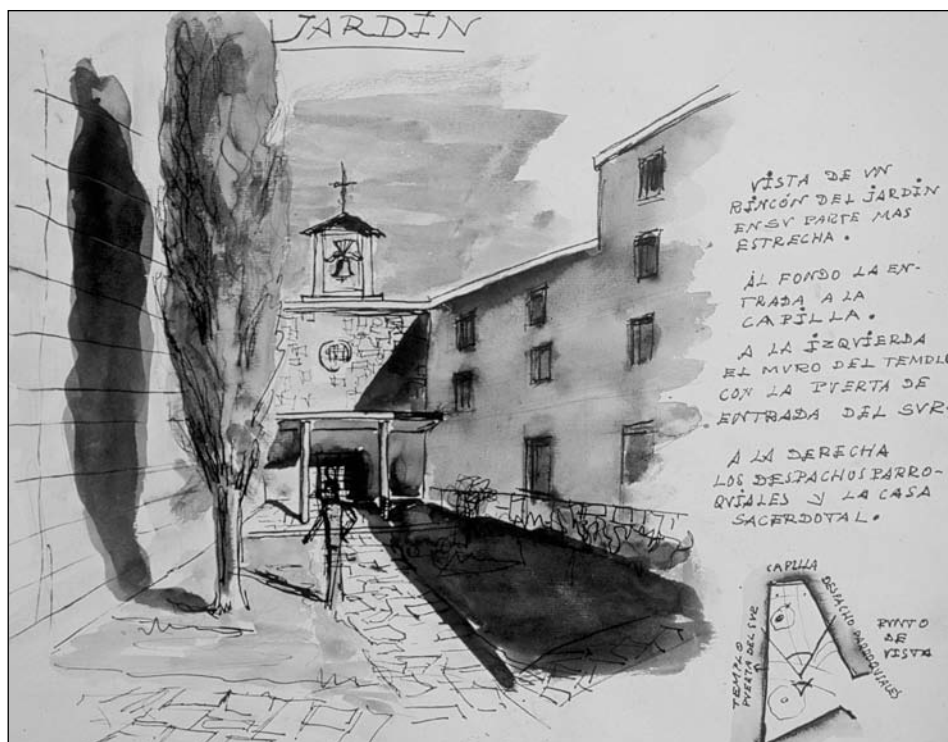 JARDÍN
VISTA DE VN
RINCÓN DEL JARDÍN
EN SV PARTE MAS
ESTRECHA.
AL FONDO LA EN-
TRADA A LA
CAPILLA.
A LA IZQVIERDA
EL MVRO DEL TEMPLO
CON LA PVERTA DE
ENTRADA DEL SVR.
A LA DERECHA
LOS DESPACHOS PARRO-
QVIALES Y LA CASA
SACERDOTAL.
CAPILLA
DESPACHO PARROQVIALES
TEMPLO
PVERTA DEL SVR
PVNTO
DE
VISTA